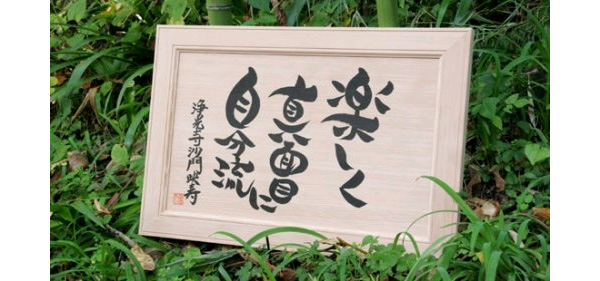 楽しく
真面目に
自分流
浄光寺沙門暎寿